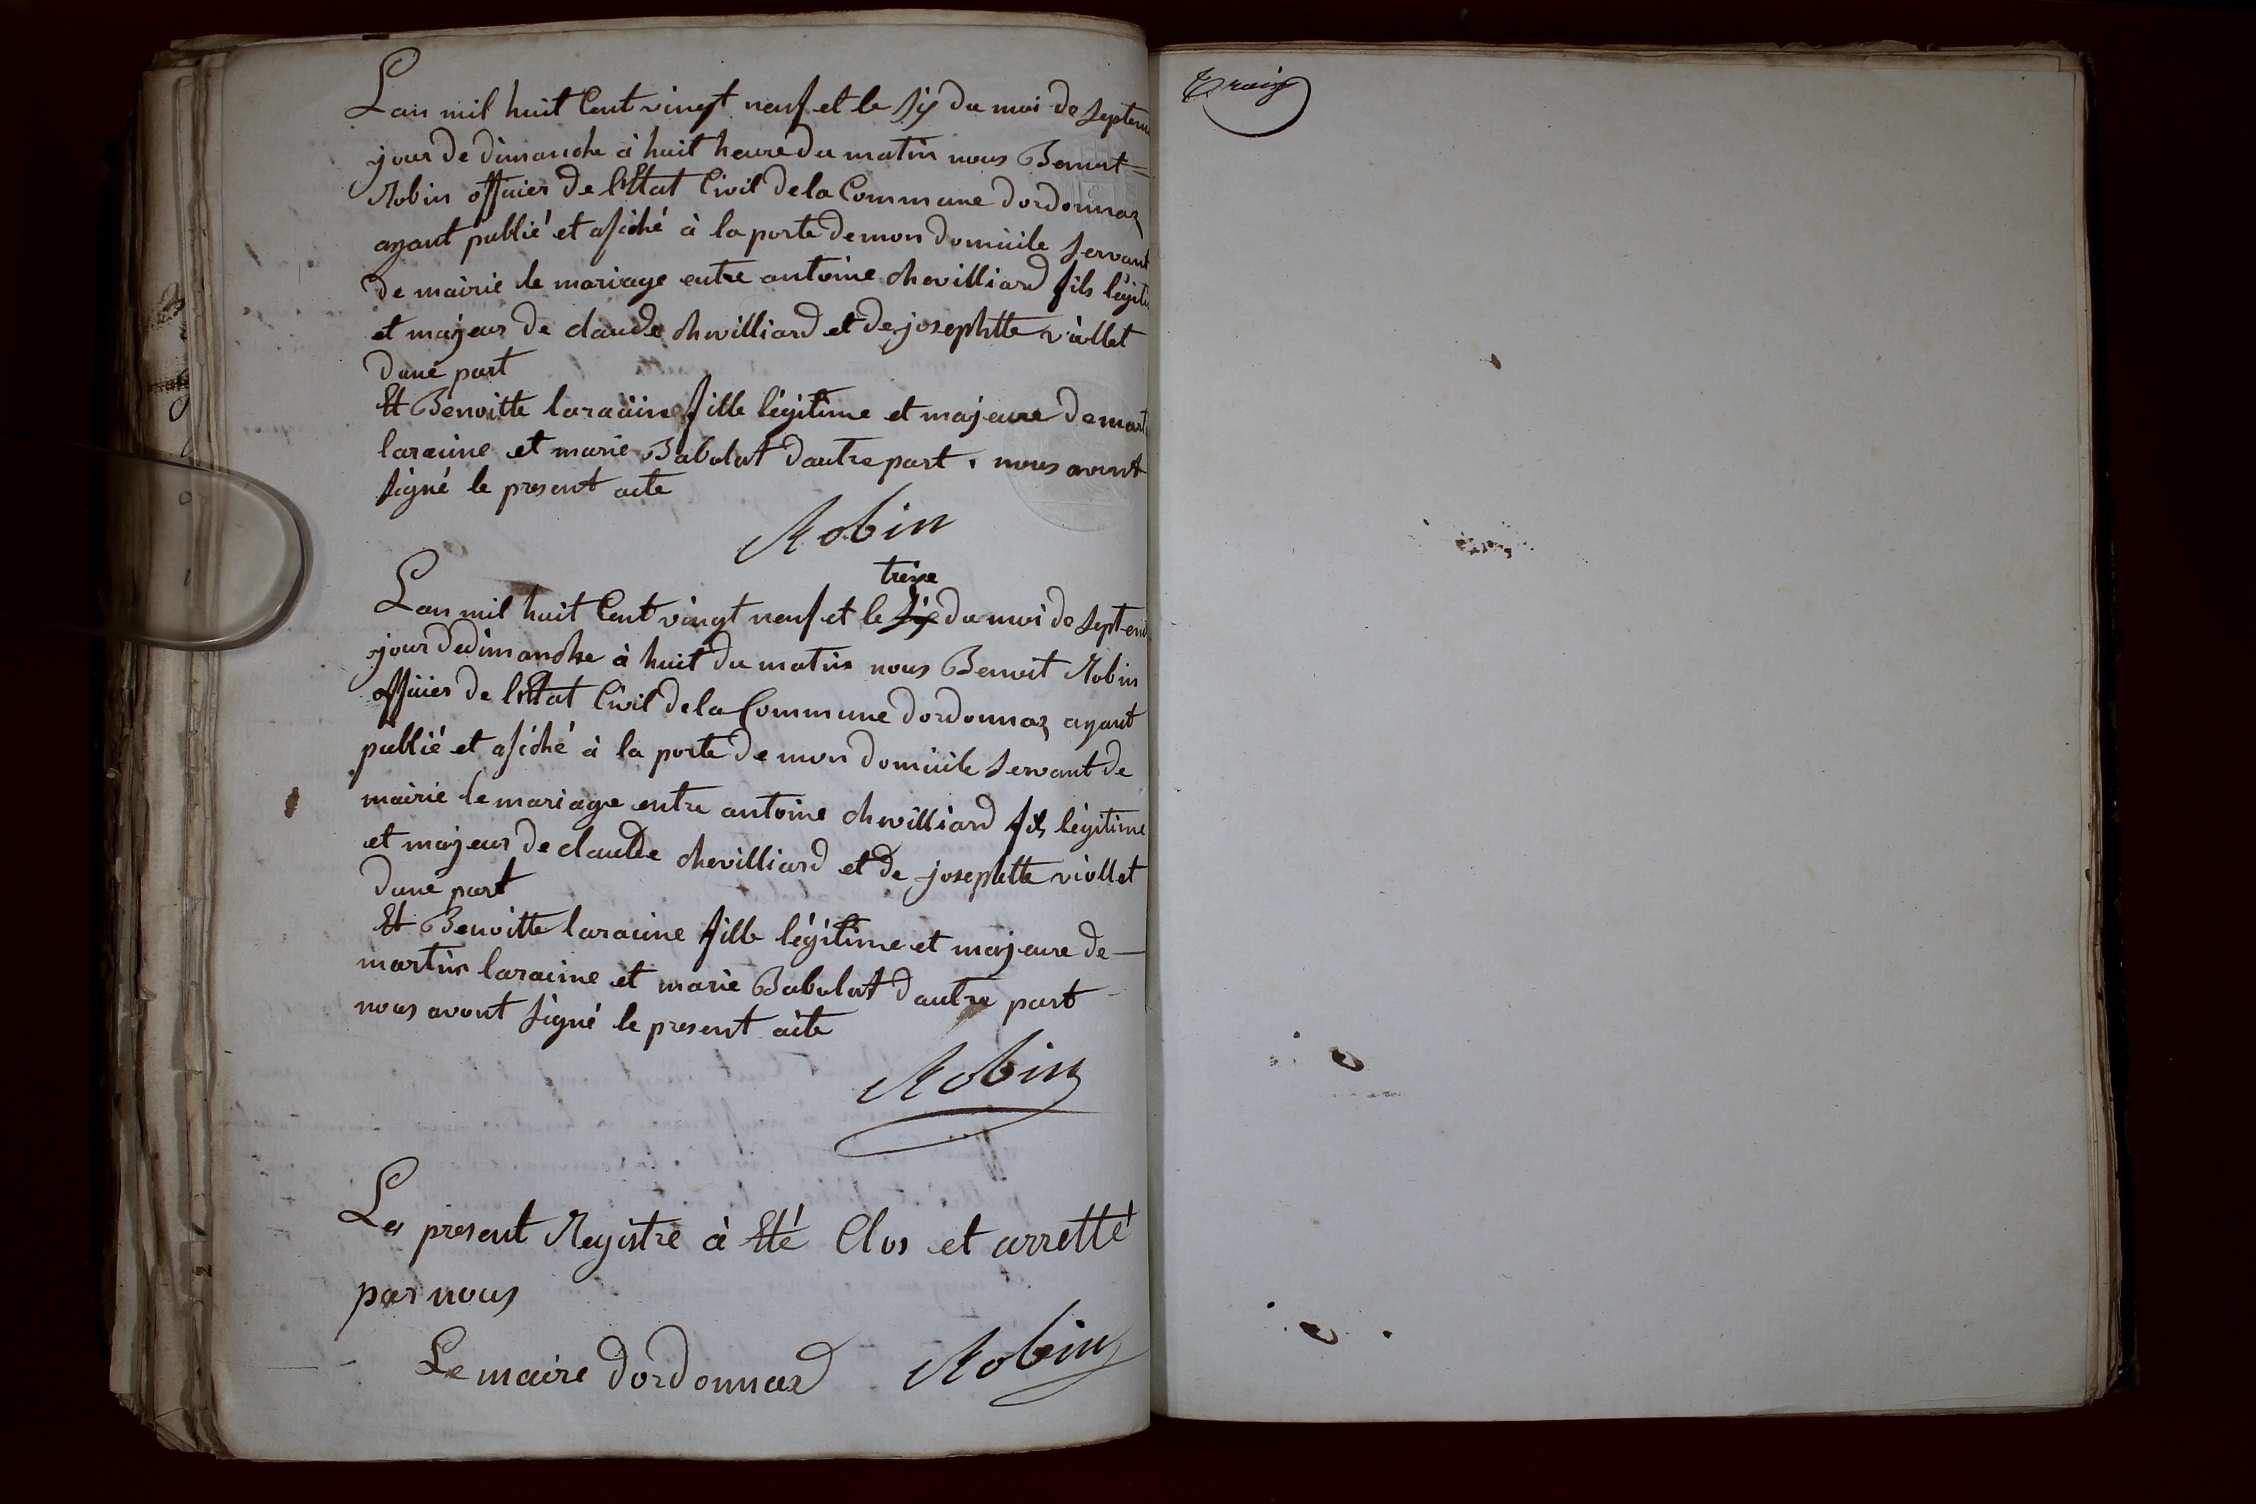 Lan mil huit Cent vingt neuf et le six du moi de Septem
jour de dimanche à huit heure du matin nous Benoit =
Robin officier de l'Etat Civil de la Commune dordonnaz
ayant publié et afiché à la porte de mon domicile servant
de mairie le mariage entre antoine chevilliard fils légiti
et majeur de claude chevilliard et de josephtte viollet
dune part
Et Benoitte laracine fille légitime et majeure de mart
laracine et marie Babolat dautre part . nous avont
signé le present acte
Robin
treize
Lan mil huit Cent vingt neuf et le six du moi de Septem
jour de dimanche à huit du matin nous Benoit Robin
officier de l'Etat Civil de la Commune dordonnaz ayant
publié et afiché à la porte de mon domicile servant de
mairie le mariage entre antoine chevilliard fils légitime
et majeur de claudde chevilliard et de josephtte viollet
dune part
Et Benoitte laracine fille légitime et majeure de —
martin laracine et marie Babolat dautre part
nous avont signé le present acte
Robin
Le present Registre à Eté Clos et arretté
par nous
Le maire dordonnaz Robin